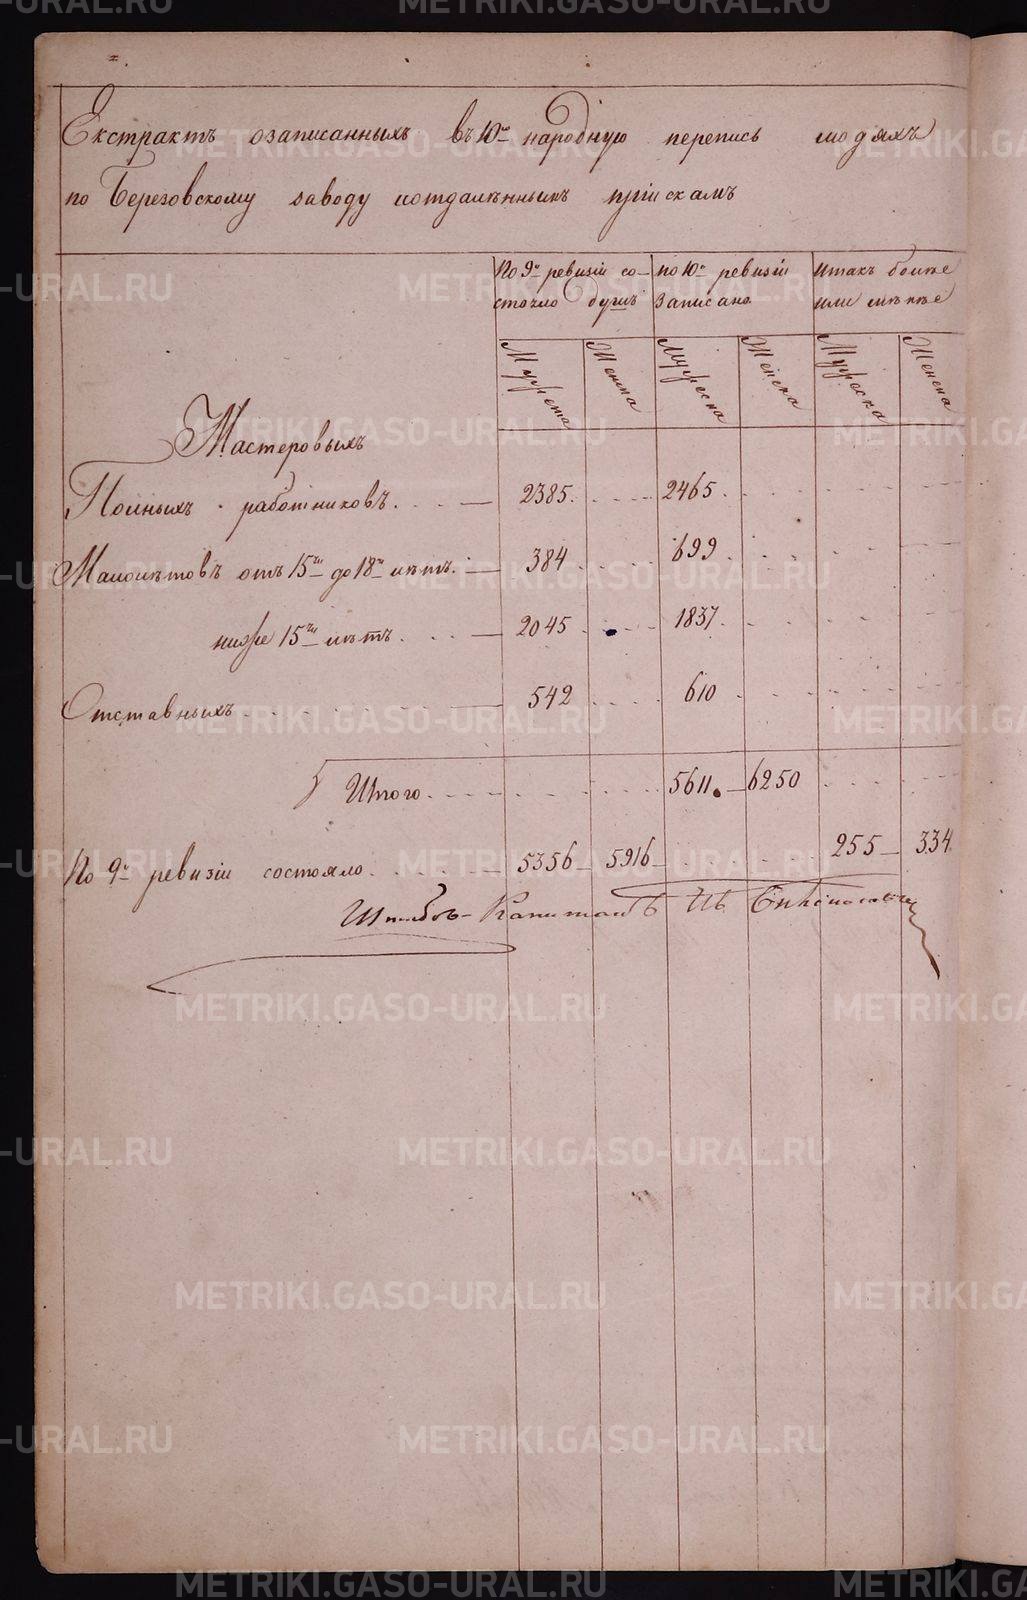 Екстрактъ озаписанныхъ въ 10ю народную перепись людяхъ
по Березовскому заводу иотдалѣнныхъ пріискамъ
По 9й ревизіи со-
стояло душъ
по 10й ревизіи
записано
Итакъ болѣе
или мѣнѣе
Мужеска Женска Мужеска Женска Мужеска Женска
Мастеровыхъ
Полныхъ работниковъ. 2385. 2465.
Малолѣтовъ отъ 15ти до 18ти лѣтъ. 384 699
ниже 15ти лѣтъ. 2045 1837.
Отставныхъ 542 610
Итого. 5611. 6250
По 9й ревизіи состояло. 5356 5916 255 334.
Штабсъ-Капитанъ
METRIKI.GASO-URAL.RU